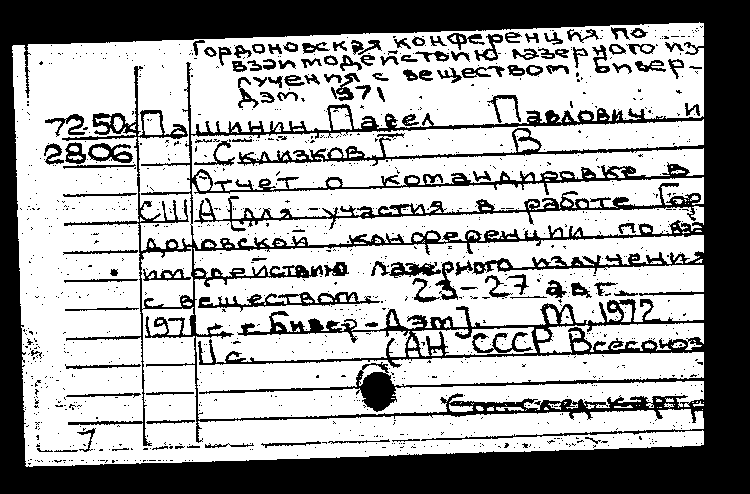 Гордоновская конференция по
взаимодействию лазерного из-
лучения с веществом. Бивер-
Дэм. 1971
72.50к Пашинин, Павел Павлович и
2806 Склизков, Г В
Отчет о командировке в
США [для участия в работе Гор
доновской конференции по вза
имодействию лазерного излучения
с веществом. 23-27 авг.
1971 г. г. Бивер-Дэм]. М, 1972
11 с. (АН СССР. Всесоюз
См. след. карт
1